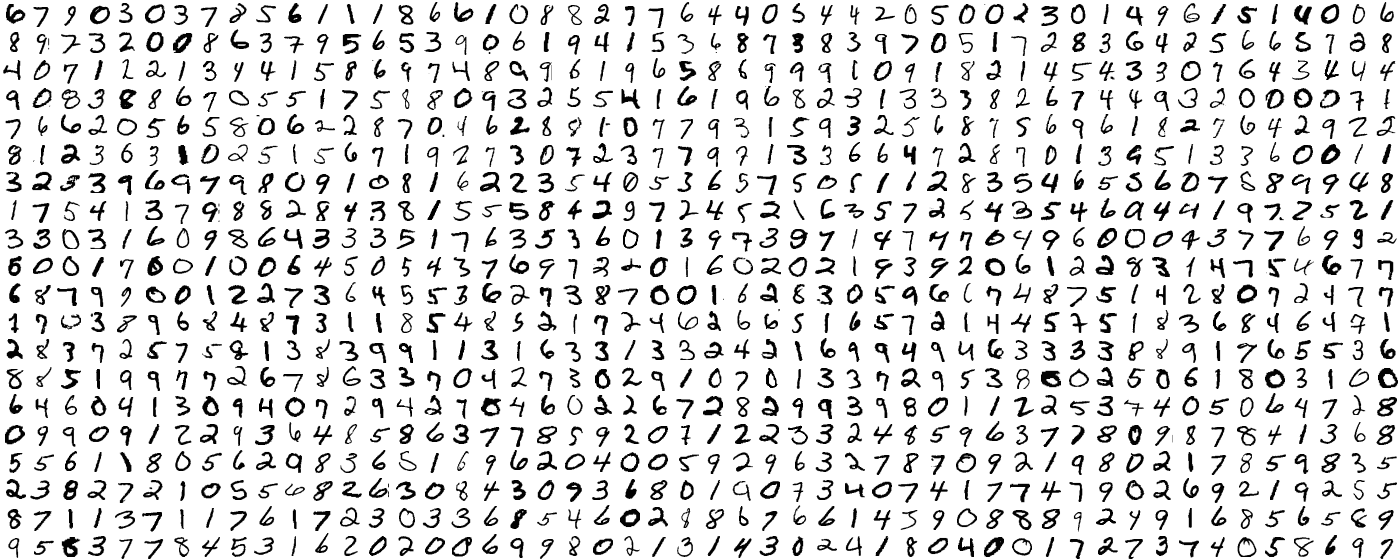 6 7 9 0 3 0 3 7 8 5 6 1 1 1 8 6 6 1 0 8 8 2 7 7 6 4 4 0 5 4 4 2 0 5 0 0 2 3 0 1 4 9 6 1 5 1 4 0 0 6
8 9 7 3 2 0 0 8 6 3 7 9 5 6 5 3 9 0 6 1 9 4 1 5 3 6 8 7 3 8 3 9 7 0 5 1 7 2 8 3 6 4 2 5 6 6 5 7 2 8
4 0 7 1 2 2 1 3 4 4 1 5 8 6 9 7 4 8 9 9 6 1 9 6 5 8 6 9 9 9 1 0 9 1 8 2 1 4 5 4 3 3 0 7 6 4 3 4 4 4
9 0 8 3 8 8 6 7 0 5 5 1 7 5 8 8 0 9 3 2 5 5 4 1 6 1 9 6 8 2 3 1 3 3 3 8 2 6 7 4 4 9 3 2 0 0 0 0 7 1
7 6 6 2 0 5 6 5 8 0 6 2 2 8 7 0 4 6 2 8 8 1 0 7 7 9 3 1 5 9 3 2 5 6 8 7 5 6 9 6 1 8 2 7 6 4 2 9 2 2
8 1 2 3 6 3 1 0 2 5 1 5 6 7 1 9 2 7 3 0 7 2 3 7 7 9 7 1 3 3 6 6 4 7 2 8 7 0 1 3 9 5 1 3 3 6 0 0 1 1
3 2 5 3 9 6 9 7 9 8 0 9 1 0 8 1 6 2 2 3 5 4 0 5 3 6 5 7 5 0 5 1 1 2 8 3 5 4 6 5 5 6 0 7 5 8 9 9 4 8
1 7 5 4 1 3 7 9 8 8 2 8 4 3 8 1 5 5 5 8 4 2 9 7 2 4 5 2 1 6 3 5 7 2 5 4 3 5 4 6 9 4 4 1 9 7 2 5 2 1
3 3 0 3 1 6 0 9 8 6 4 3 3 3 5 1 7 6 3 5 3 6 0 1 3 9 7 3 9 7 1 4 7 4 7 7 0 4 9 6 0 0 0 4 3 7 7 6 9 9 2
6 0 0 1 7 0 0 1 0 0 6 4 5 0 5 4 3 7 6 9 7 2 2 0 1 6 0 2 0 2 1 9 3 9 2 0 6 1 2 2 8 3 1 4 7 5 4 6 7 7
6 8 7 9 9 0 0 1 2 2 7 3 6 4 5 5 3 6 2 7 3 8 7 0 0 1 6 2 8 3 0 5 9 6 6 7 4 8 7 5 1 4 2 8 0 7 2 4 7 7
1 7 0 3 8 9 6 8 4 8 7 3 1 1 8 5 4 8 5 2 1 7 2 4 6 2 6 6 5 1 6 5 7 2 1 4 4 5 7 5 1 8 3 6 8 4 6 4 7 1
2 8 3 7 2 5 7 5 8 1 3 8 3 9 9 1 1 3 1 6 3 3 1 3 3 2 4 2 1 6 9 9 4 9 4 6 3 3 3 3 8 8 9 1 7 6 5 5 3 6
8 8 5 1 9 9 7 7 2 6 7 8 6 3 3 7 0 4 2 7 3 0 2 9 1 0 7 0 1 3 3 7 2 9 5 3 8 0 0 2 5 0 6 1 8 0 3 1 0 0
6 4 6 0 4 1 3 0 9 4 0 7 2 9 4 2 7 0 4 6 0 2 2 6 7 2 8 2 9 9 3 9 8 0 1 1 2 2 5 3 7 4 0 5 0 6 4 7 2 8
0 9 9 0 9 1 2 2 9 3 6 4 8 5 8 6 3 7 7 8 5 9 2 0 7 1 2 2 3 3 2 4 8 5 9 6 3 7 7 8 0 9 8 7 8 4 1 3 6 8
5 5 6 1 1 8 0 5 6 2 9 8 3 6 5 1 6 9 6 2 0 4 0 0 5 9 2 9 6 3 2 7 8 7 0 9 2 1 9 8 0 2 1 7 8 5 9 8 3 5
2 3 8 2 7 2 1 0 5 5 6 8 2 6 3 0 8 4 3 0 9 3 6 8 0 1 9 0 7 3 4 0 7 4 1 7 7 4 7 9 0 2 6 9 2 1 9 2 5 5
8 7 1 1 3 7 1 1 7 6 1 7 2 3 0 3 3 6 8 5 4 6 0 2 8 8 6 7 6 6 1 4 5 9 0 8 8 8 9 2 4 9 1 6 8 5 6 5 8 9
9 5 6 3 7 7 8 4 5 3 1 6 2 0 2 0 0 6 9 9 8 0 2 1 3 1 4 3 0 2 4 1 8 0 4 0 0 1 7 2 7 3 7 4 0 5 8 6 9 7